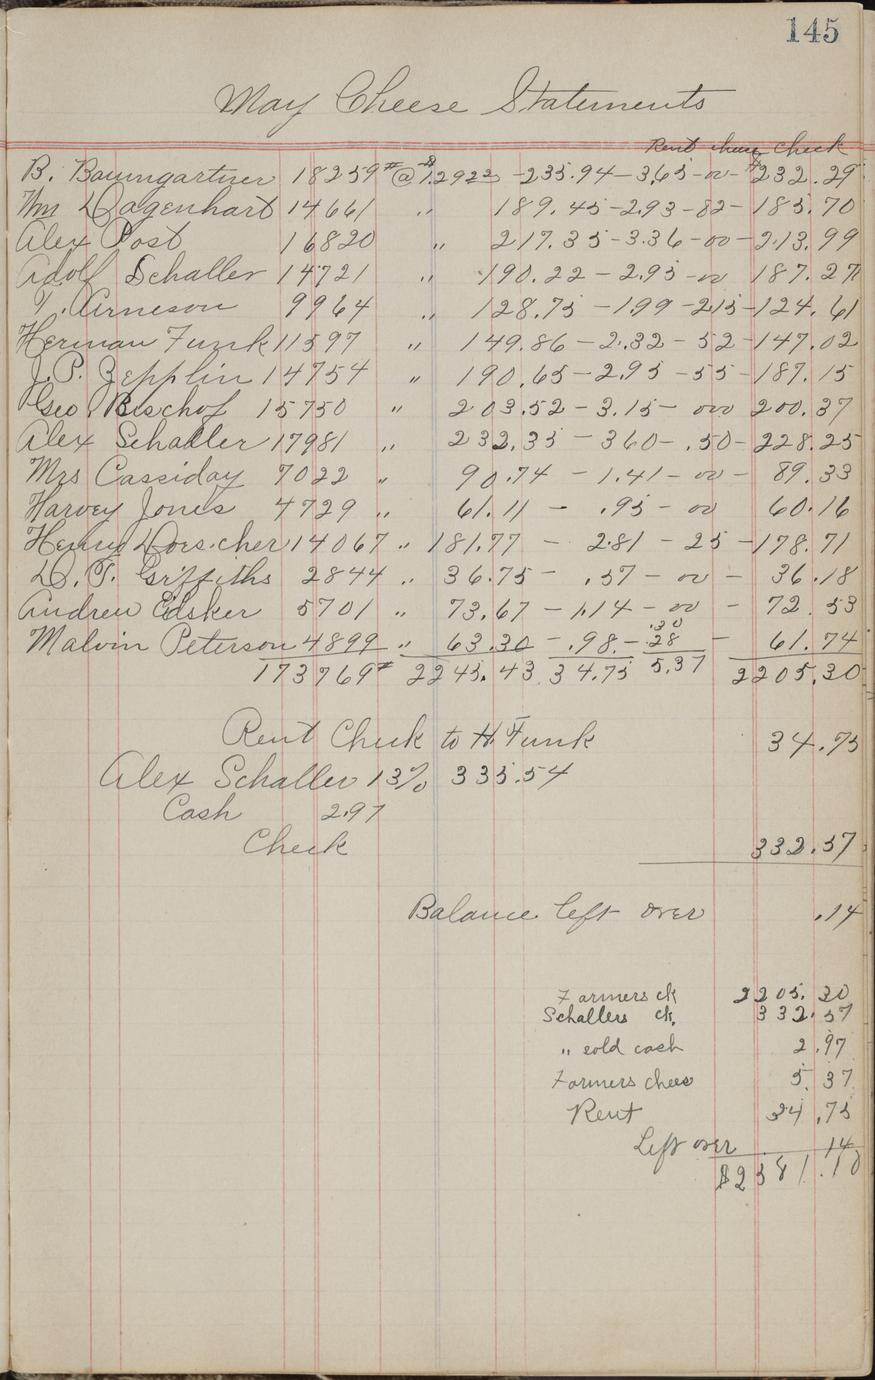 145
May Cheese Statements
Rent cheese check
B. Baumgartner 18259# @ $1.2922 - 235.94 - 3.65 - 00 - $232.29
Wm Dagenhart 14661 " 189.45 - 2.93 - 82 - 185.70
Alex Post 16820 " 217.35 - 3.36 - 00 - 213.99
Adolf Schaller 14721 " 190.22 - 2.95 - 00 187.27
T. Arneson 9964 " 128.75 - 1.99 - 2.15 - 124.61
Herman Funk 11597 " 149.86 - 2.32 - 52 - 147.02
J. P. Zepplin 14754 " 190.65 - 2.95 - 55 - 187.15
Geo. Bischof 15750 " 203.52 - 3.15 - 000 200.37
Alex Schaller 17981 " 232.35 - 360 - .50 - 228.25
Mrs Cassiday 7022 " 90.74 - 1.41 - 00 - 89.33
Harvey Jones 4729 " 61.11 - .95 - 00 60.16
Henry Dorscher 14067 " 181.77 - 2.81 - 25 - 178.71
D. T. Griffiths 2844 " 36.75 - .57 - 00 - 36.18
Andrew Edsker 5701 " 73.67 - 1.14 - 00 - 72.53
.30
Malvin Peterson 4899 " 63.30 - .98 - 28 - 61.74
173769# 2245.43 34.75 5.37 2205.30
Rent Check to H. Funk 34.75
Alex Schaller 13% 335.54
Cash 2.97
Check 332.57
Balance left over .14
Farmers ck 2205.30
Schallers ck. 332.57
" sold cash 2.97
Farmers chees 5.37
Rent 34.75
Left over 14
$2581.10